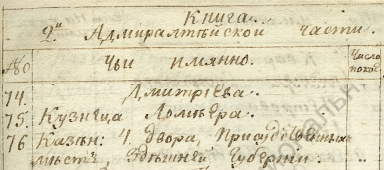 Книга.
2й Адмиралтѣйской части.
№ Чьи имянно. Число покоє.
74. Дмитрїева.
75. Кузнеца Ломпера.
76 Казен: 4 двора,
мѣстѣ, здѣшней Губернїи.